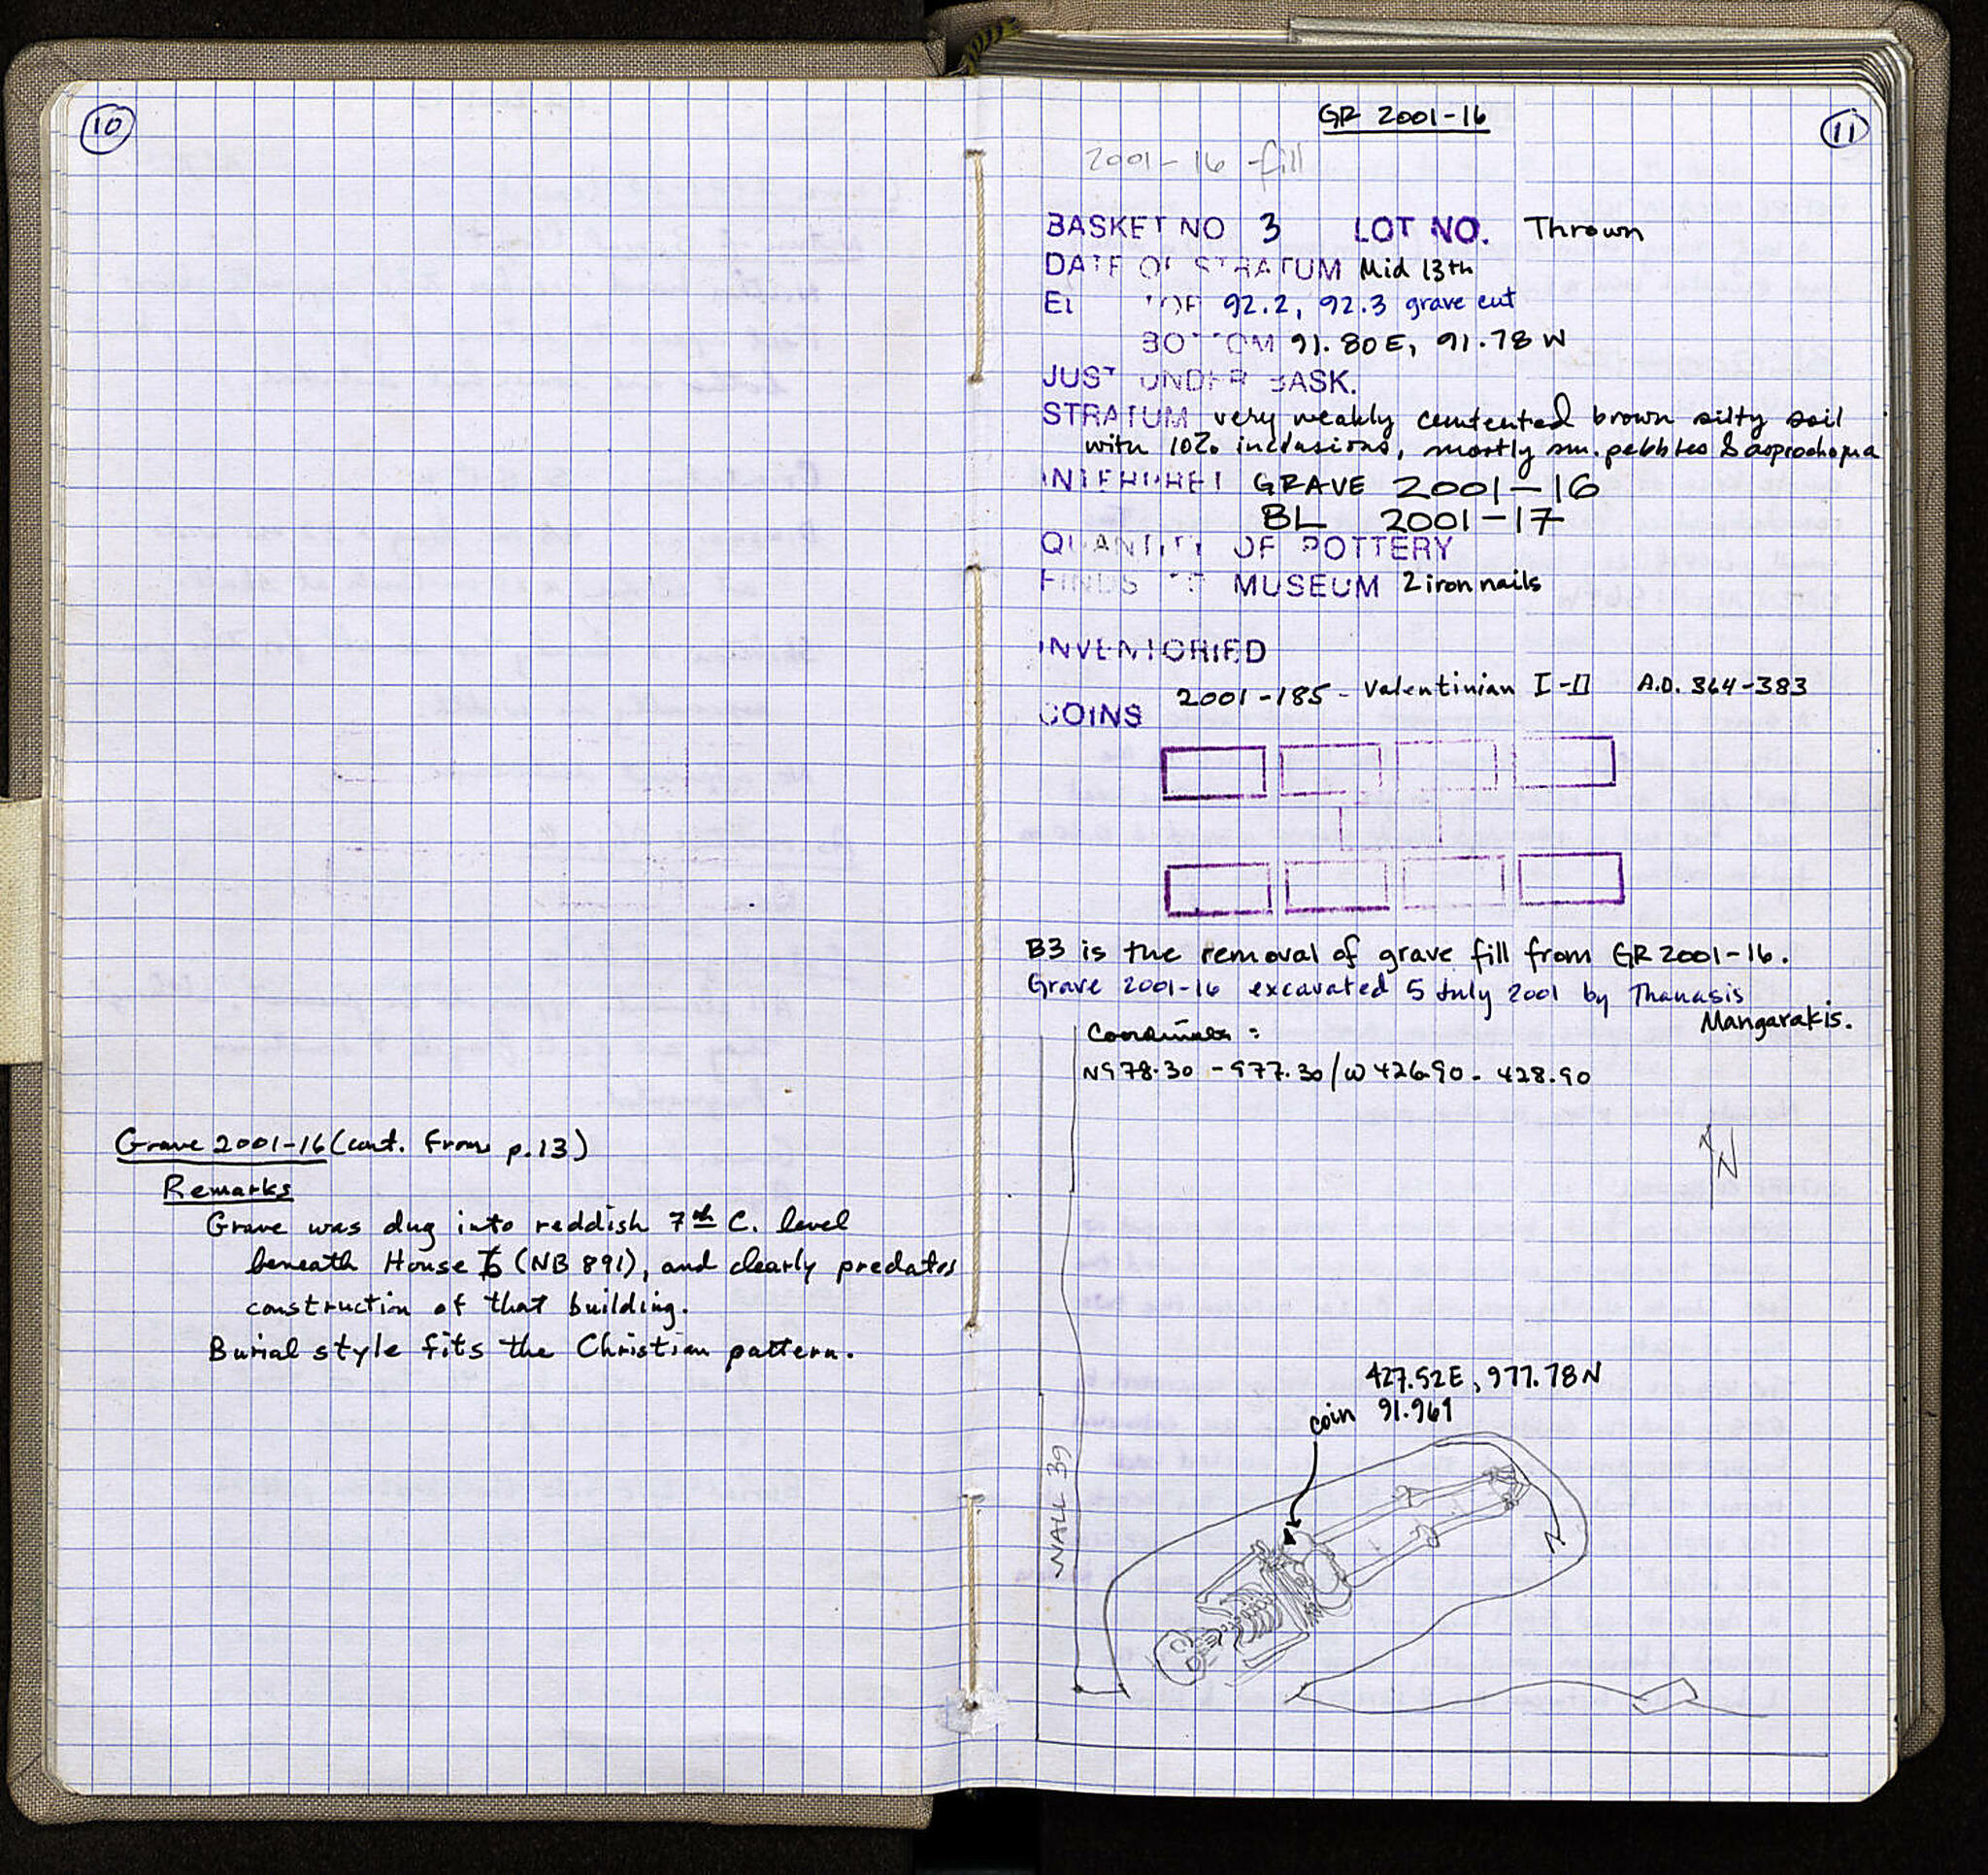 10
Grave 2001-16 (cont. from p.13)
Remarks
Grave was dug into reddish 7th C. level
beneath House (NB 891), and clearly predates
construction of that building.
Burial style fits the Christian pattern.
11
GR 2001-16
2001-16 fill
BASKET NO 3 LOT NO. Thrown
DATE OF STRATUM Mid 13th
EL TOP 92.2, 92.3 grave cut
BOTTOM 91.80E, 91.78W
JUST UNDER BASK.
STRATUM very weakly cemtented brown silty soil
with 10% inclusions, mostly sm. pebbles & asprochoma
INTERPRET GRAVE 2001-16
BL 2001-17
QUANTITY OF POTTERY
FINDS TO MUSEUM 2 iron nails
INVENTORIED
2001-185 - Valentinian I-II A.D. 364-383
COINS
B3 is the removal of grave fill from GR 2001-16.
Grave 2001-16 excavated 5 July 2001 by Thanasis
Mangarakis.
Coordinates :
N978.30 - 977.30/W 426.90 - 428.90
N
427.52E, 977.78N
coin 91.961
WALL 39